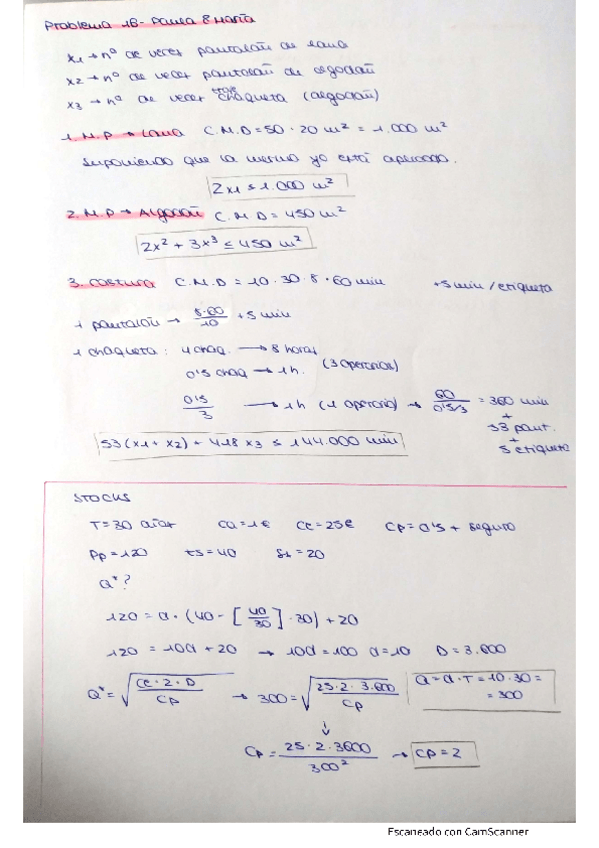 Problema 1B- Paula 8 María
x1 → nº de veces pantalón de lana
x2 → nº de veces pantalón de algodón
x3 → nº de veces chaqueta (algodón)
1. M.P → Lana C.M.D = 50 · 20 m² = 1.000 m²
Suponiendo que la merma ya está aplicada.
2x1 ≤ 1.000 m²
2. M.P → Algodón C.M.D = 450 m²
2x² + 3x³ ≤ 450 m²
3. Costura C.M.D = 10 · 30 · 8 · 60 min +5 min / etiqueta
1 pantalón → 8·60/10 +5 min
1 chaqueta: 4 chaq. → 8 horas
0'5 chaq → 1h. (3 operarios)
0'5/3 → 1h (1 operario) → 60/0'5/3 = 360 min
+
53 pant.
+
5 etiqueta
53(x1 + x2) + 418 x3 ≤ 144.000 min
STOCKS
T = 30 días Ca = 1€ Ce = 25€ Cp = 0'5 + seguro
Pp = 120 ts = 40 S1 = 20
Q* ?
120 = d · (40 - [40/30] · 30) + 20
120 = 10d + 20 → 10d = 100 d = 10 D = 3.600
Q* = √(Ce · 2 · D / Cp) → 300 = √(25 · 2 · 3.600 / Cp) Q = d · T = 10 · 30 =
= 300
↓
Cp = 25 · 2 · 3600 / 300² → Cp = 2
Escaneado con CamScanner